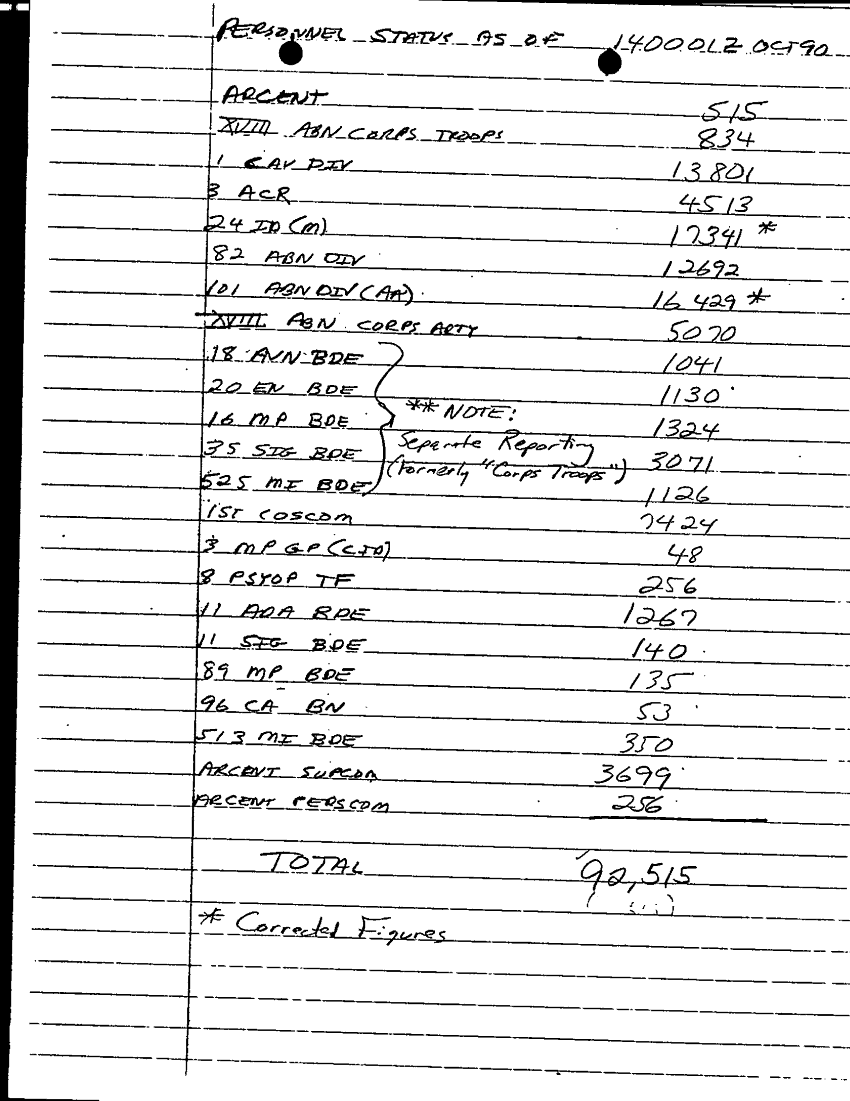 PERSONNEL STATUS AS OF 140001Z OCT90
ARCENT 515
XVIII ABN CORPS TROOPS 834
1 CAV DIV 13801
3 ACR 4513
24 ID (M) 17341 *
82 ABN DIV 12692
101 ABN DIV (AA) 16429 *
XVIII ABN CORPS ARTY 5070
18 AVN BDE 1041
20 EN BDE 1130
** NOTE:
16 MP BDE 1324
Separate Reporting
35 SIG BDE 3071
(formerly "Corps Troops")
525 MI BDE 1126
1ST COSCOM 7424
3 MP GP (CID) 48
8 PSYOP TF 256
11 ADA BDE 1267
11 SIG BDE 140
89 MP BDE 135
96 CA BN 53
513 MI BDE 350
ARCENT SUPCOM 3699
ARCENT PERSCOM 256
TOTAL 92,515
* Corrected Figures